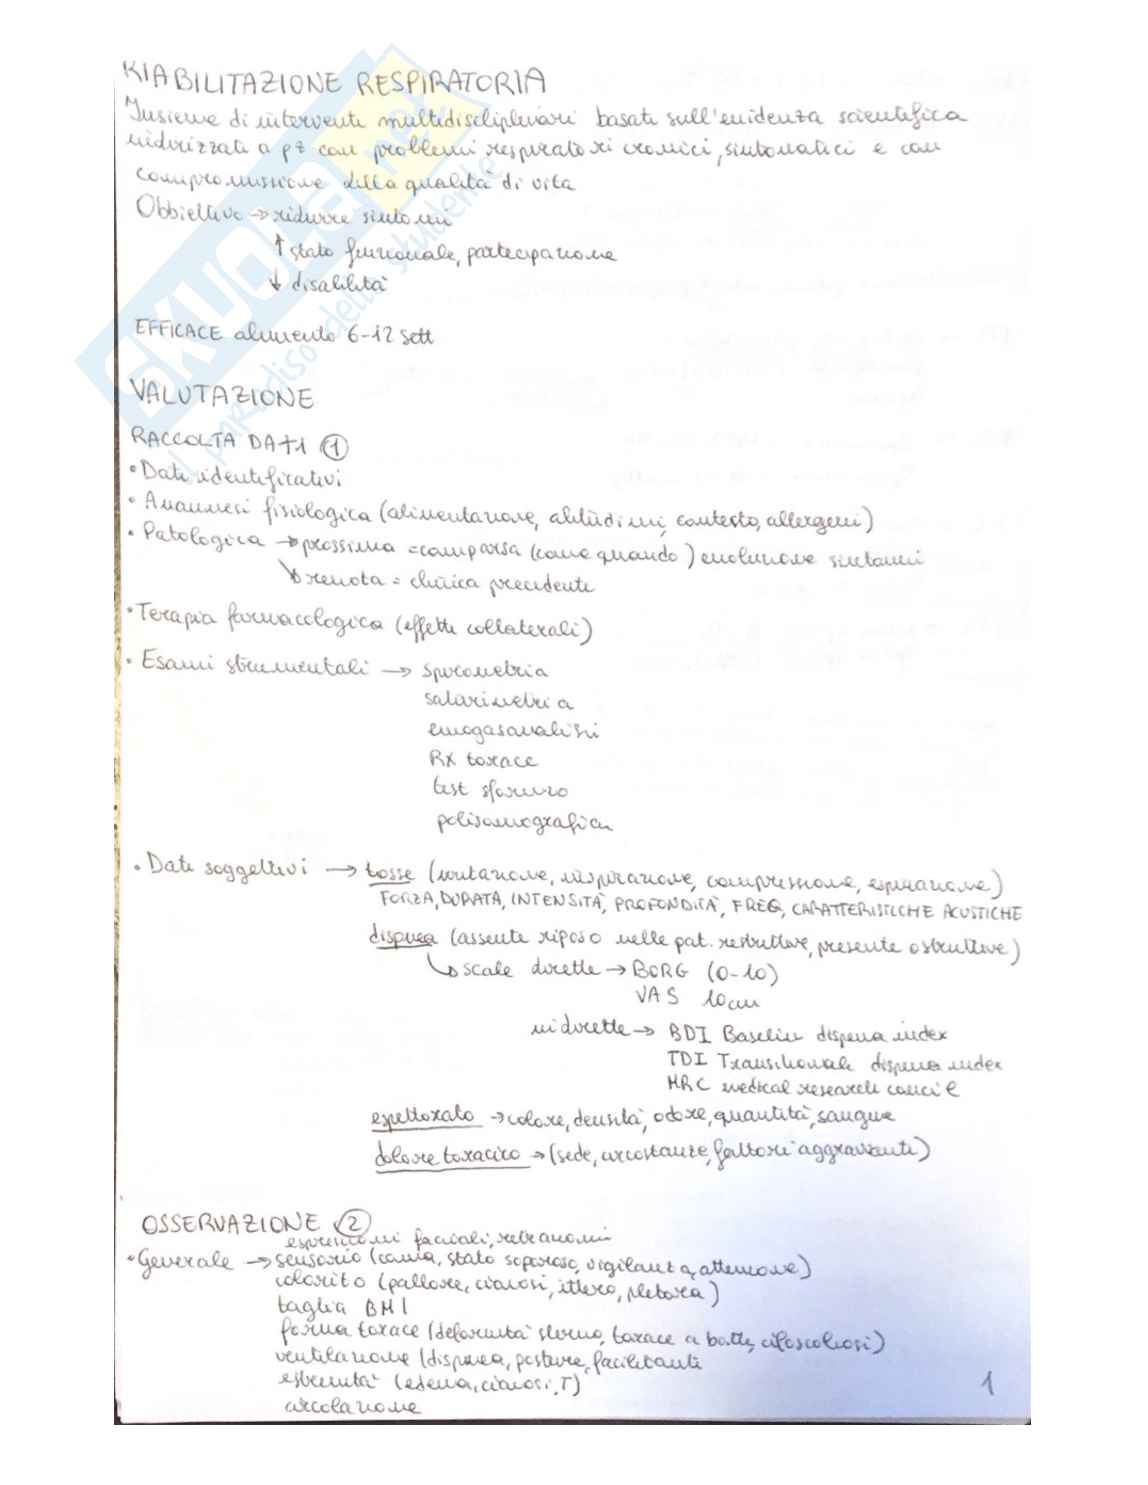 RIABILITAZIONE RESPIRATORIA
Insieme di interventi multidisciplinari basati sull'evidenza scientifica
indirizzati a pz con problemi respiratori cronici, sintomatici e con
compromissione della qualità di vita
Obbiettivo → ridurre sintomi
↑ stato funzionale, partecipazione
↓ disabilità
EFFICACE almento 6-12 sett
VALUTAZIONE
RACCOLTA DATI 1
• Dati identificativi
• Anamnesi fisiologica (alimentazione, abitudini, contesto, allergeni)
• Patologica → prossima = comparsa (come quando) evoluzione sintomi
↘ remota = clinica precedente
• Terapia farmacologica (effetti collaterali)
• Esami strumentali → spirometria
saturimetria
emogasanalisi
RX torace
test sforzo
polisonnografia
• Dati soggettivi → tosse (irritazione, inspirazione, compressione, espirazione)
FORZA, DURATA, INTENSITÀ, PROFONDITÀ, FREQ, CARATTERISTICHE ACUSTICHE
dispnea (assente riposo nelle pat. restrittive, presente ostruttive)
↳ scale dirette → BORG (0-10)
VAS 10cm
indirette → BDI Baselin dispnea index
TDI Transitionale dispnea index
MRC medical research concil
espettorato → colore, densità, odore, quantità, sangue
dolore toracico → (sede, circostanze, fattori aggravanti)
OSSERVAZIONE 2
espressioni facciali, relazioni
• Generale → sensorio (coma, stato soporoso, vigilanza, attenzione)
colorito (pallore, cianosi, ittero, pletora)
taglia BMI
forma torace (deformità sterno, torace a botte, cifoscoliosi)
ventilazione (dispnea, posture, facilitanti
estremità (edema, cianosi, T)
circolazione
1
SKUOLA.net
il paradiso dello studente